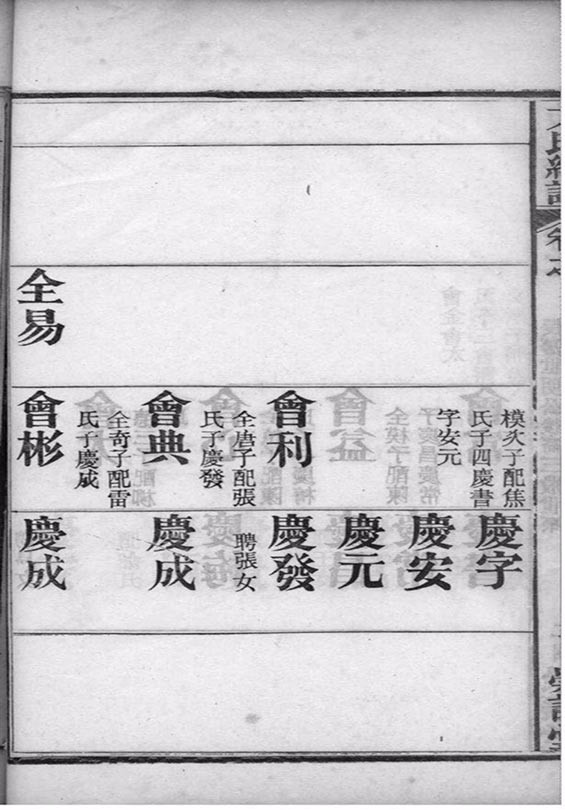 卷之
全易
模次子配焦
氏子四慶書
字安元
會利
全唐子配張
氏子慶發
會典
全奇子配雷
氏子慶成
會彬
慶字
慶安
慶元
慶發
聘張女
慶成
慶成